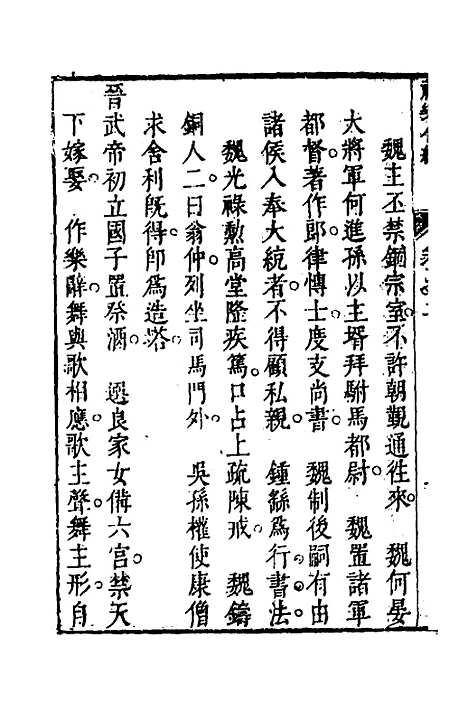 魏主丕禁錮宗室。不許朝覲通往來。　魏何晏
大將軍何進孫以主壻拜駙馬都尉。　魏置諸軍
都督。著作郎。律博士。度支尚書。　魏制後嗣有由
諸侯入奉大統者。不得顧私親。　鍾繇爲行書法。
魏光祿勳高堂隆疾篤。口占上疏陳戒。　魏鑄
銅人二。曰翁仲。列坐司馬門外。　吳孫權使康僧
求舍利。旣得。卽爲造塔。
晉武帝初立國子置祭酒。　選良家女備六宮。禁天
下嫁娶。　作樂辭。舞與歌相應。歌主聲。舞主形。自